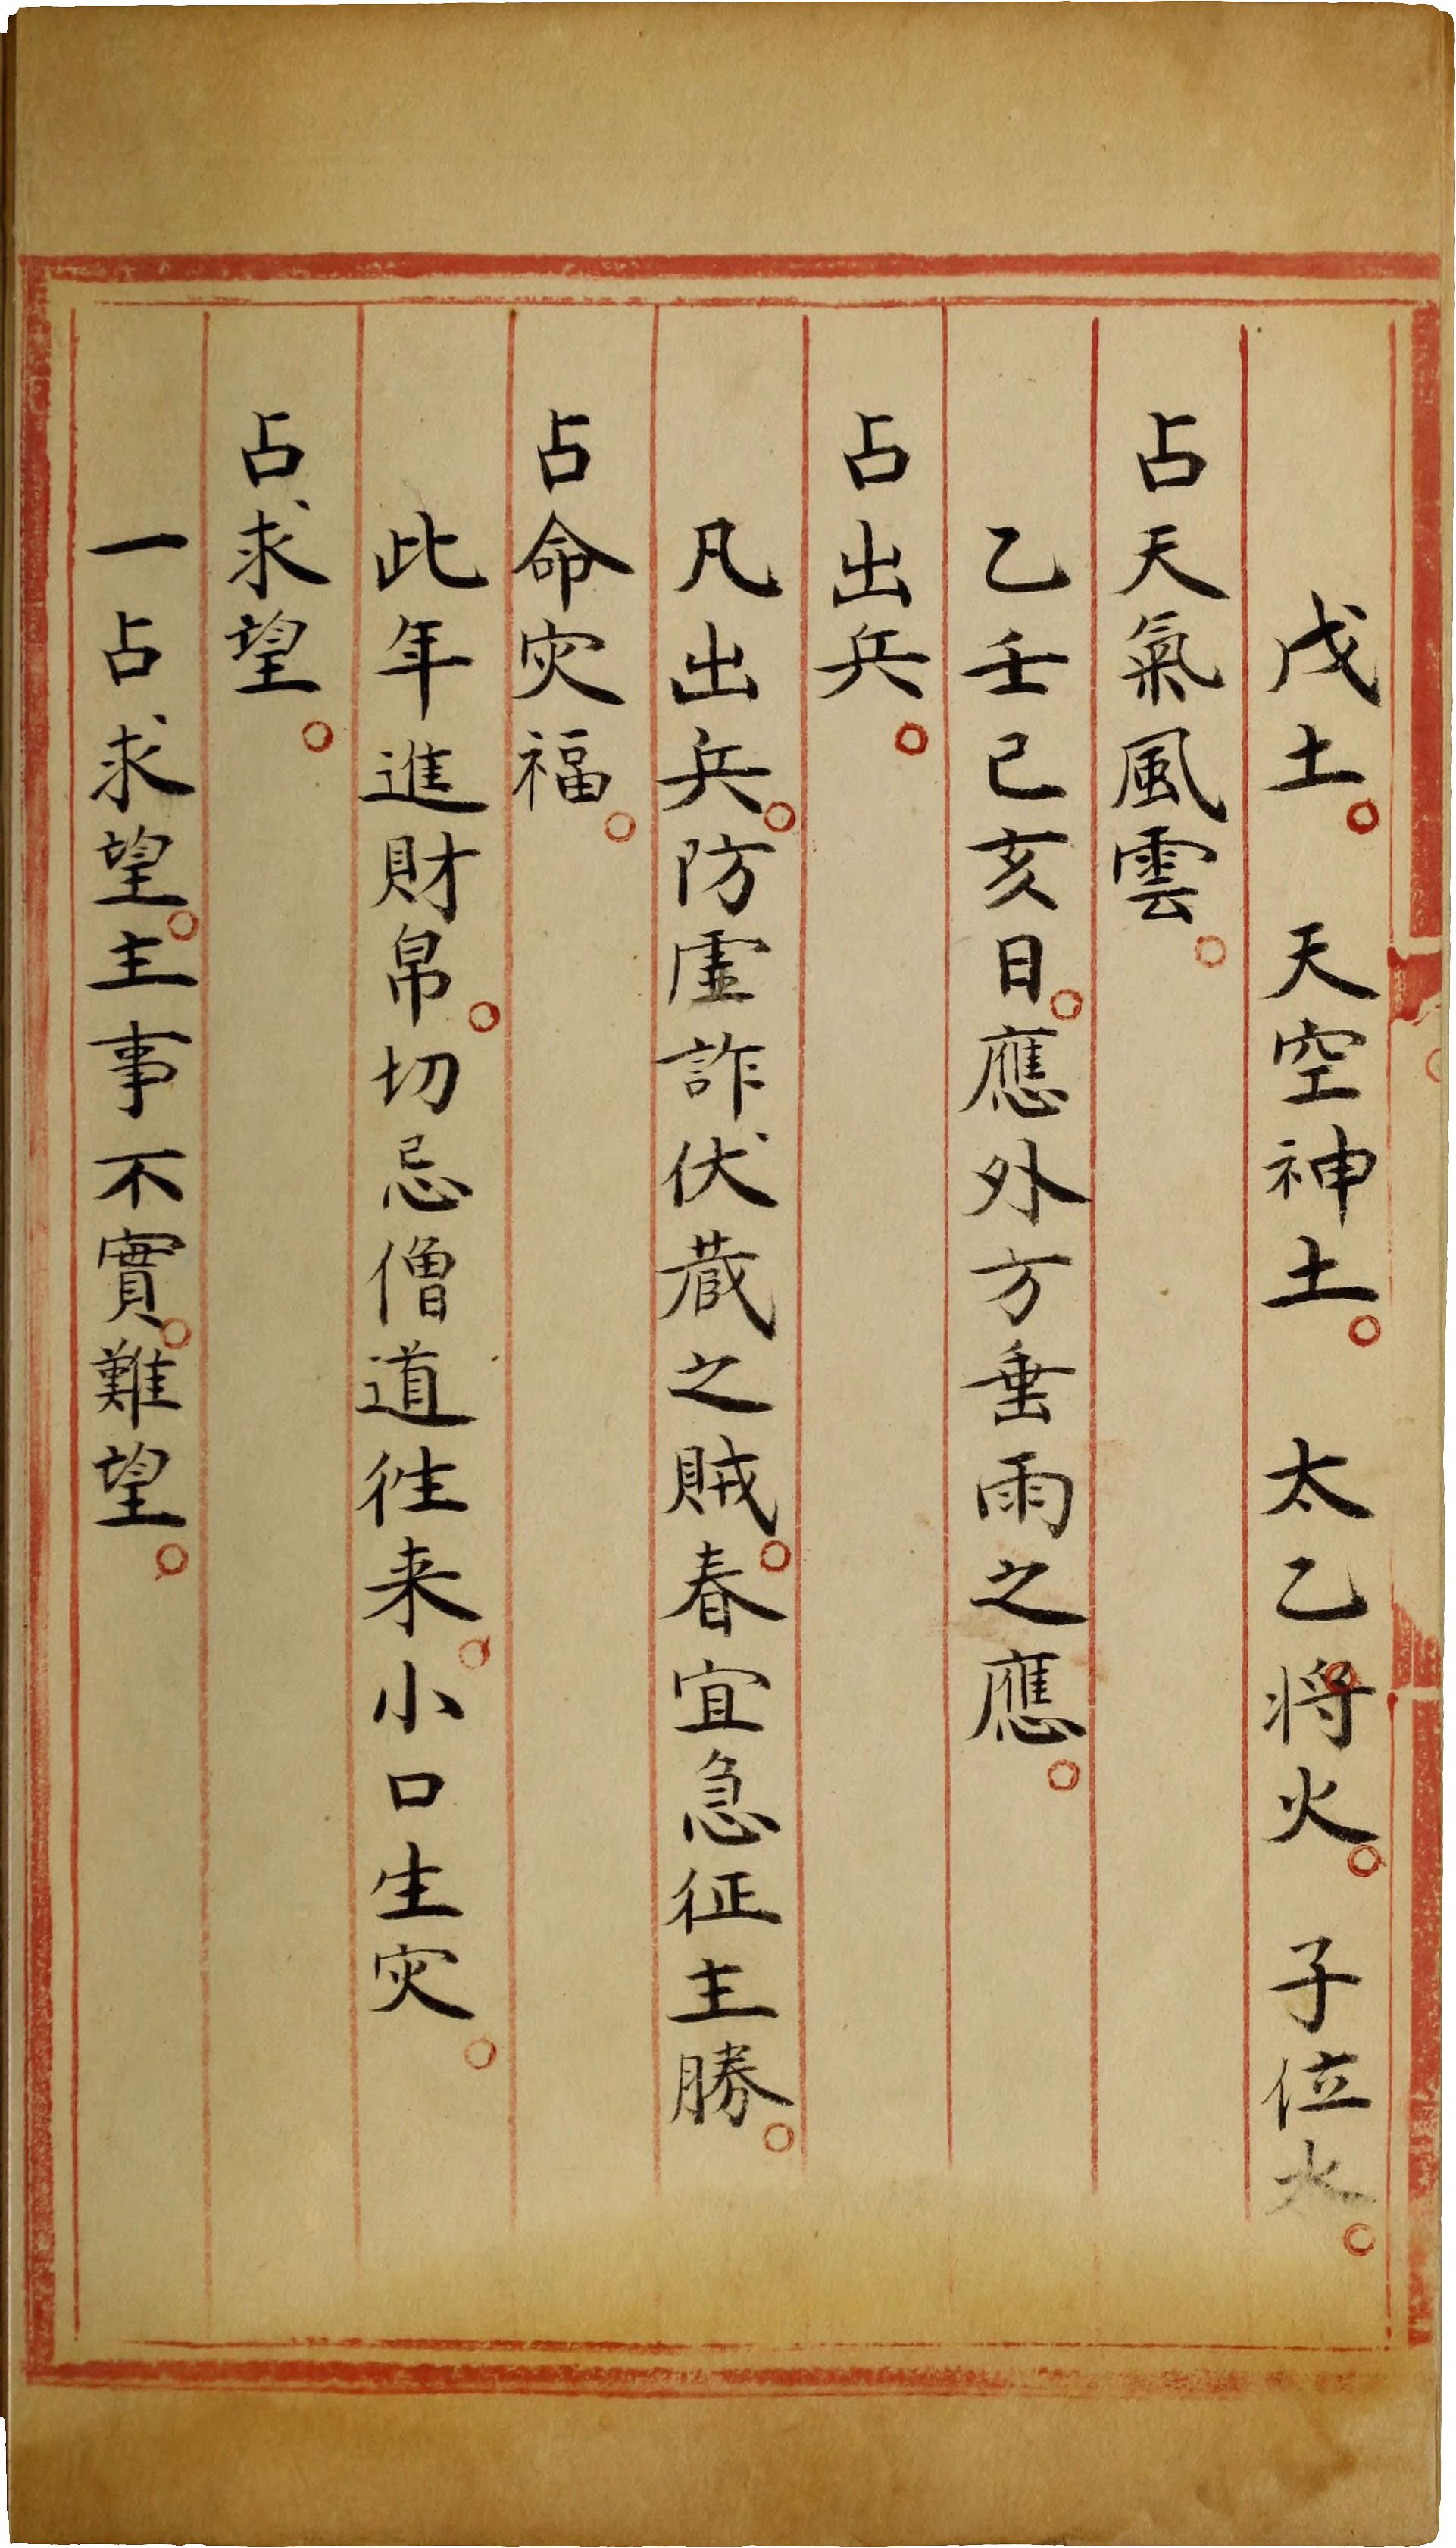 戊土。天空神土。太乙。将火。子位水。
占天氣風雲。
乙壬己亥日。應外方垂雨之應。
占出兵。
凡出兵。防虛詐伏蔵之賊。春宜急征主勝。
占命灾福。
此年進財帛。切忌僧道徃来。小口生灾。
占求望。
一占求望。主事不實。難望。